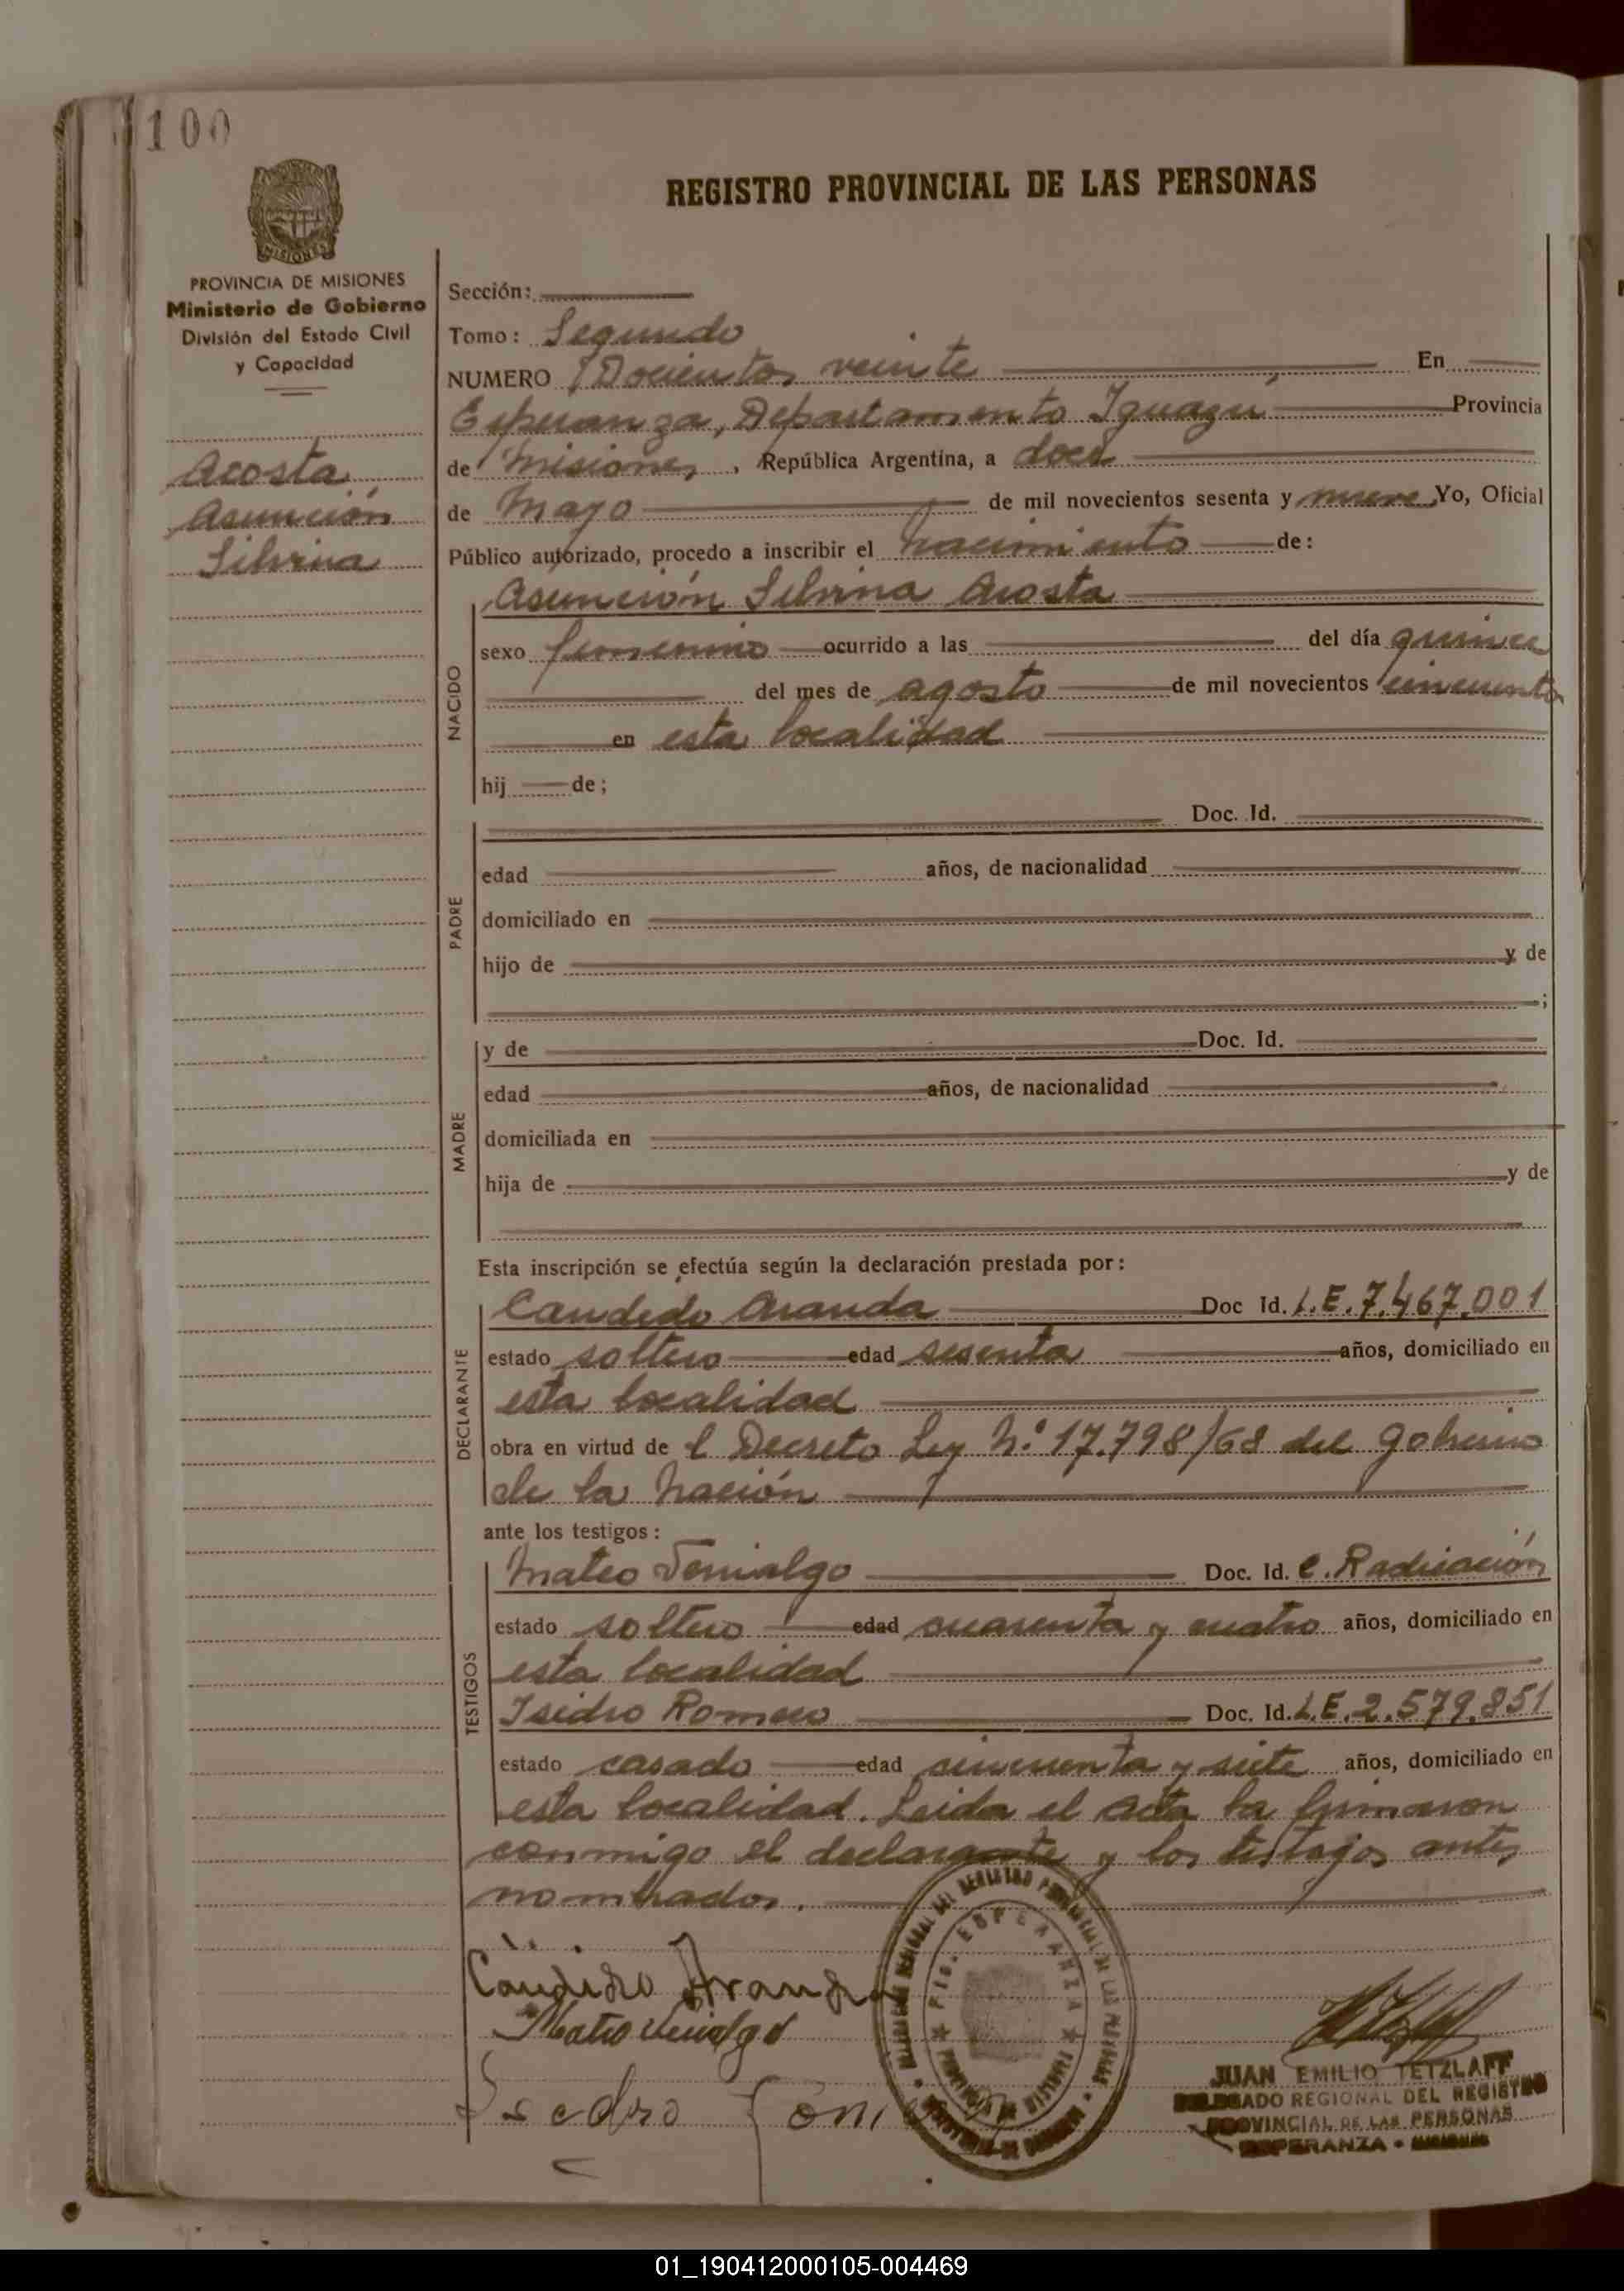 100
PROVINCIA DE MISIONES
Ministerio de Gobierno
División del Estado Civil
y Capacidad
Acosta
Asunción
Silvina
REGISTRO PROVINCIAL DE LAS PERSONAS
Sección:
Tomo: Segundo
NUMERO Docientos veinte En
Esperanza, Departamento Iguazu Provincia
de Misiones, República Argentina, a doce
de Mayo de mil novecientos sesenta y nueve Yo, Oficial
Público autorizado, procedo a inscribir el nacimiento de:
NACIDO
Asunción Silvina Acosta
sexo femenino ocurrido a las del día quince
del mes de agosto de mil novecientos cincuenta
en esta localidad
hij de;
PADRE
Doc. Id.
edad años, de nacionalidad
domiciliado en
hijo de y de
;
MADRE
y de Doc. Id.
edad años, de nacionalidad
domiciliada en
hija de y de
Esta inscripción se efectúa según la declaración prestada por:
DECLARANTE
Candido Aranda Doc Id. L.E. 7.467.001
estado soltero edad sesenta años, domiciliado en
esta localidad
obra en virtud de l Decreto Ley N.º 17.798/68 del Gobierno
de la Nación
ante los testigos:
TESTIGOS
Mateo Doc. Id. C. Radicación
estado soltero edad cuarenta y cuatro años, domiciliado en
esta localidad
Isidro Romero Doc. Id. L.E. 2.579.851
estado casado edad cincuenta y siete años, domiciliado en
esta localidad. Leida el acta la firmaron
conmigo el declarante y los testigos antes
nombrados.
Candido Aranda
Mateo
ESPERANZA
JUAN EMILIO TETZLAFF
DELEGADO REGIONAL DEL REGISTRO
PROVINCIAL DE LAS PERSONAS
ESPERANZA - MISIONES
01_190412000105-004469